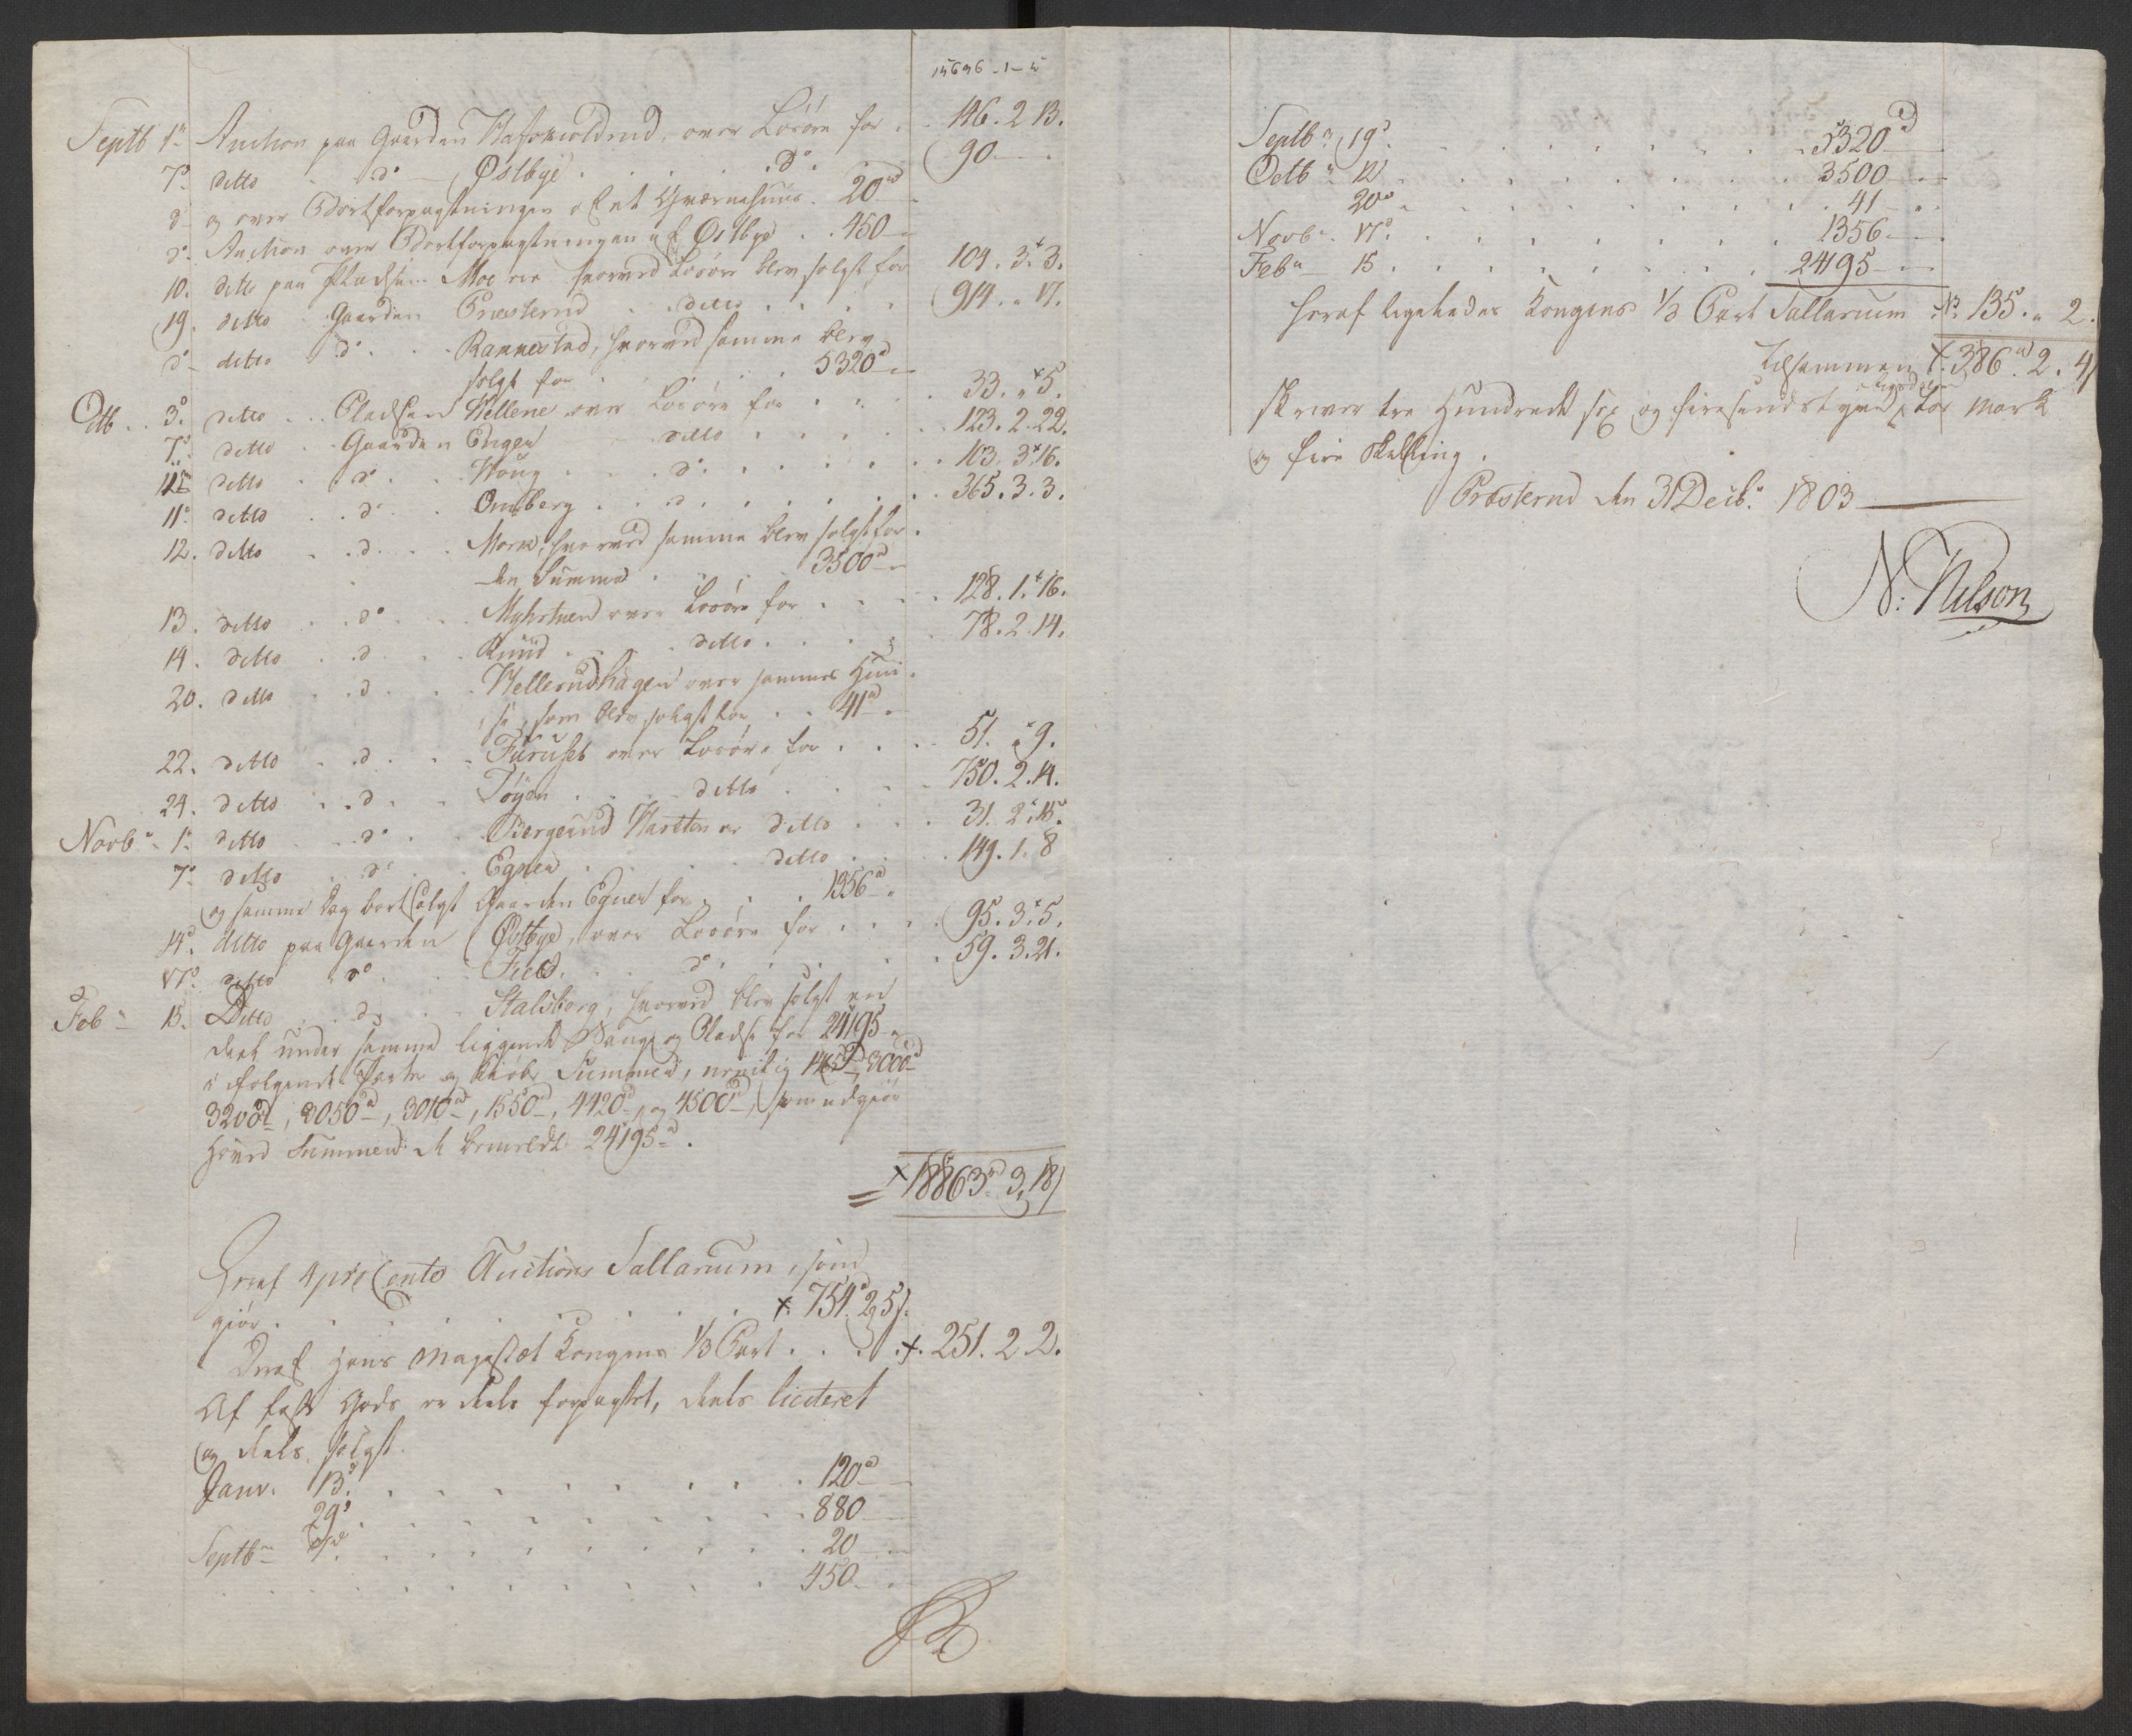 15696 - 1 - 5
Septb 1e Auction paa Gaarden Hafskioldrud, over Løsøre for . . 146. 2. 13.
7de ditto . do — Østbye . . . do . . 90 —
do og over Bortforpagtningen af et Qværnehuus . 20rd —
do Auction over Bortforpagtningen af Østbye . . 450 —
10. ditto paa Pladsen Moe hvorved Løsøre blev solgt for 104. 3. 3.
19. ditto . Gaarden Præsterud . . ditto . . . 914. „ 17.
do ditto do . . Rannestad, hvorved samme blev
solgt for . . . . 5320rd —
Octb . . 3de ditto . . Pladsen Hellene over Løsøre for . . . 33. „ 5.
7de ditto . . Gaarden Engen ditto . . . . 123. 2. 22.
11te ditto . do . . Houg . . . do . . . . 103. 3. 16.
11te ditto . . do . . Omberg . . do . . . . 365. 3. 3.
12. ditto . . do . . Mork, hvorved samme blev solgt for
den Summa . . 3500rd —
13. ditto . . do . . Myhrstuen over Løsøre for . . . 128. 1. 16.
14. ditto . . do . . Ruud . . . ditto . . . 78. 2. 14.
20. ditto . . do . . Hellerudhagen over sammes Huu-
se, som blev solgt for . . 41rd —
22. ditto . . do . . Furuset over Løsøre for . . . 51. „ 9.
24. ditto . . do . . Tøyen . . . ditto . . . 750. 2. 14.
Novbr 1e ditto . . do . . Bergerud ditto . . 31. 2. 15.
7de ditto . . do . . Egner . . . ditto . . . 149. 1. 8
og samme Dag bortsolgt Gaarden Egner for . . . 1356rd „
14de ditto paa Gaarden Østbye, over Løsøre for . . . 95. 3. 5.
17de ditto do . . Field . . . do . . . 59. 3. 21.
Febr 15. Ditto . . do . . Stalsberg, hvorved blev solgt en
deel under samme liggende Vange og Pladse for 24195 „
i følgende Parter og Kiøbe Summer, nemlig 1465rd, 3000rd
3200rd, 3050rd, 3010rd, 1550rd, 4420rd, og 4500rd, som udgiør
Hoved Summen de bemeldte 24195rd.
= 18863rd 3. 18
Heraf 4 pro Cento Auctions Sallarium, som
giør . . . . . . 754. 2. 5.
Deraf Hans Majestæt Kongens 1/3 Part . . . 251. 2. 2.
Af faste Gods er deels forpagtet, deels liciteret
og deels solgt.
Janv. 13de . . . . . . . 120rd —
29de . . . . . . . 880 —
Septbr 7de . . . . . . . 20 —
. . . . . . . 450 — „
Septbr 19de . . . . . . . 5320rd
Octbr 12 . . . . . . . 3500 —
20de . . . . . . . 41 — „
Novbr 17de . . . . . . . 1356 —
Febr 15 . . . . . . . 24195 —
heraf ligeledes Kongens 1/3 Part Sallarium 135. „ 2.
tilsammen 386rd 2. 4
skriver tre Hundrede sex og firesindstyve Rigsdaler, toe Mark
og fire Skilling.
Præsterud den 31 Decbr 1803
N: Nilson